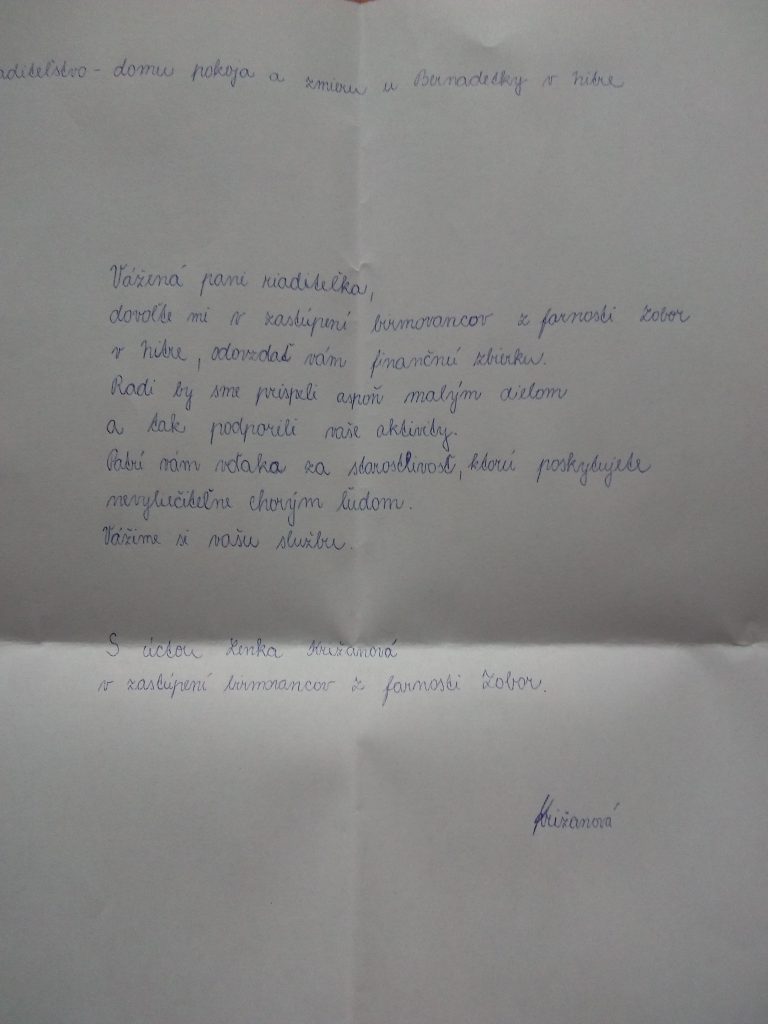 aditeľstvo - domu pokoja a zmieru u Bernadetky v Nitre
Vážená pani riaditeľka,
dovoľte mi v zastúpení birmovancov z farnosti Zobor
v Nitre, odovzdať vám finančnú zbierku.
Radi by sme prispeli aspoň malým dielom
a tak podporili vaše aktivity.
Patrí vám vďaka za starostlivosť, ktorú poskytujete
nevyliečiteľne chorým ľuďom.
Vážime si vašu službu.
S úctou Lenka Križanová
v zastúpení birmovancov z farnosti Zobor.
Križanová